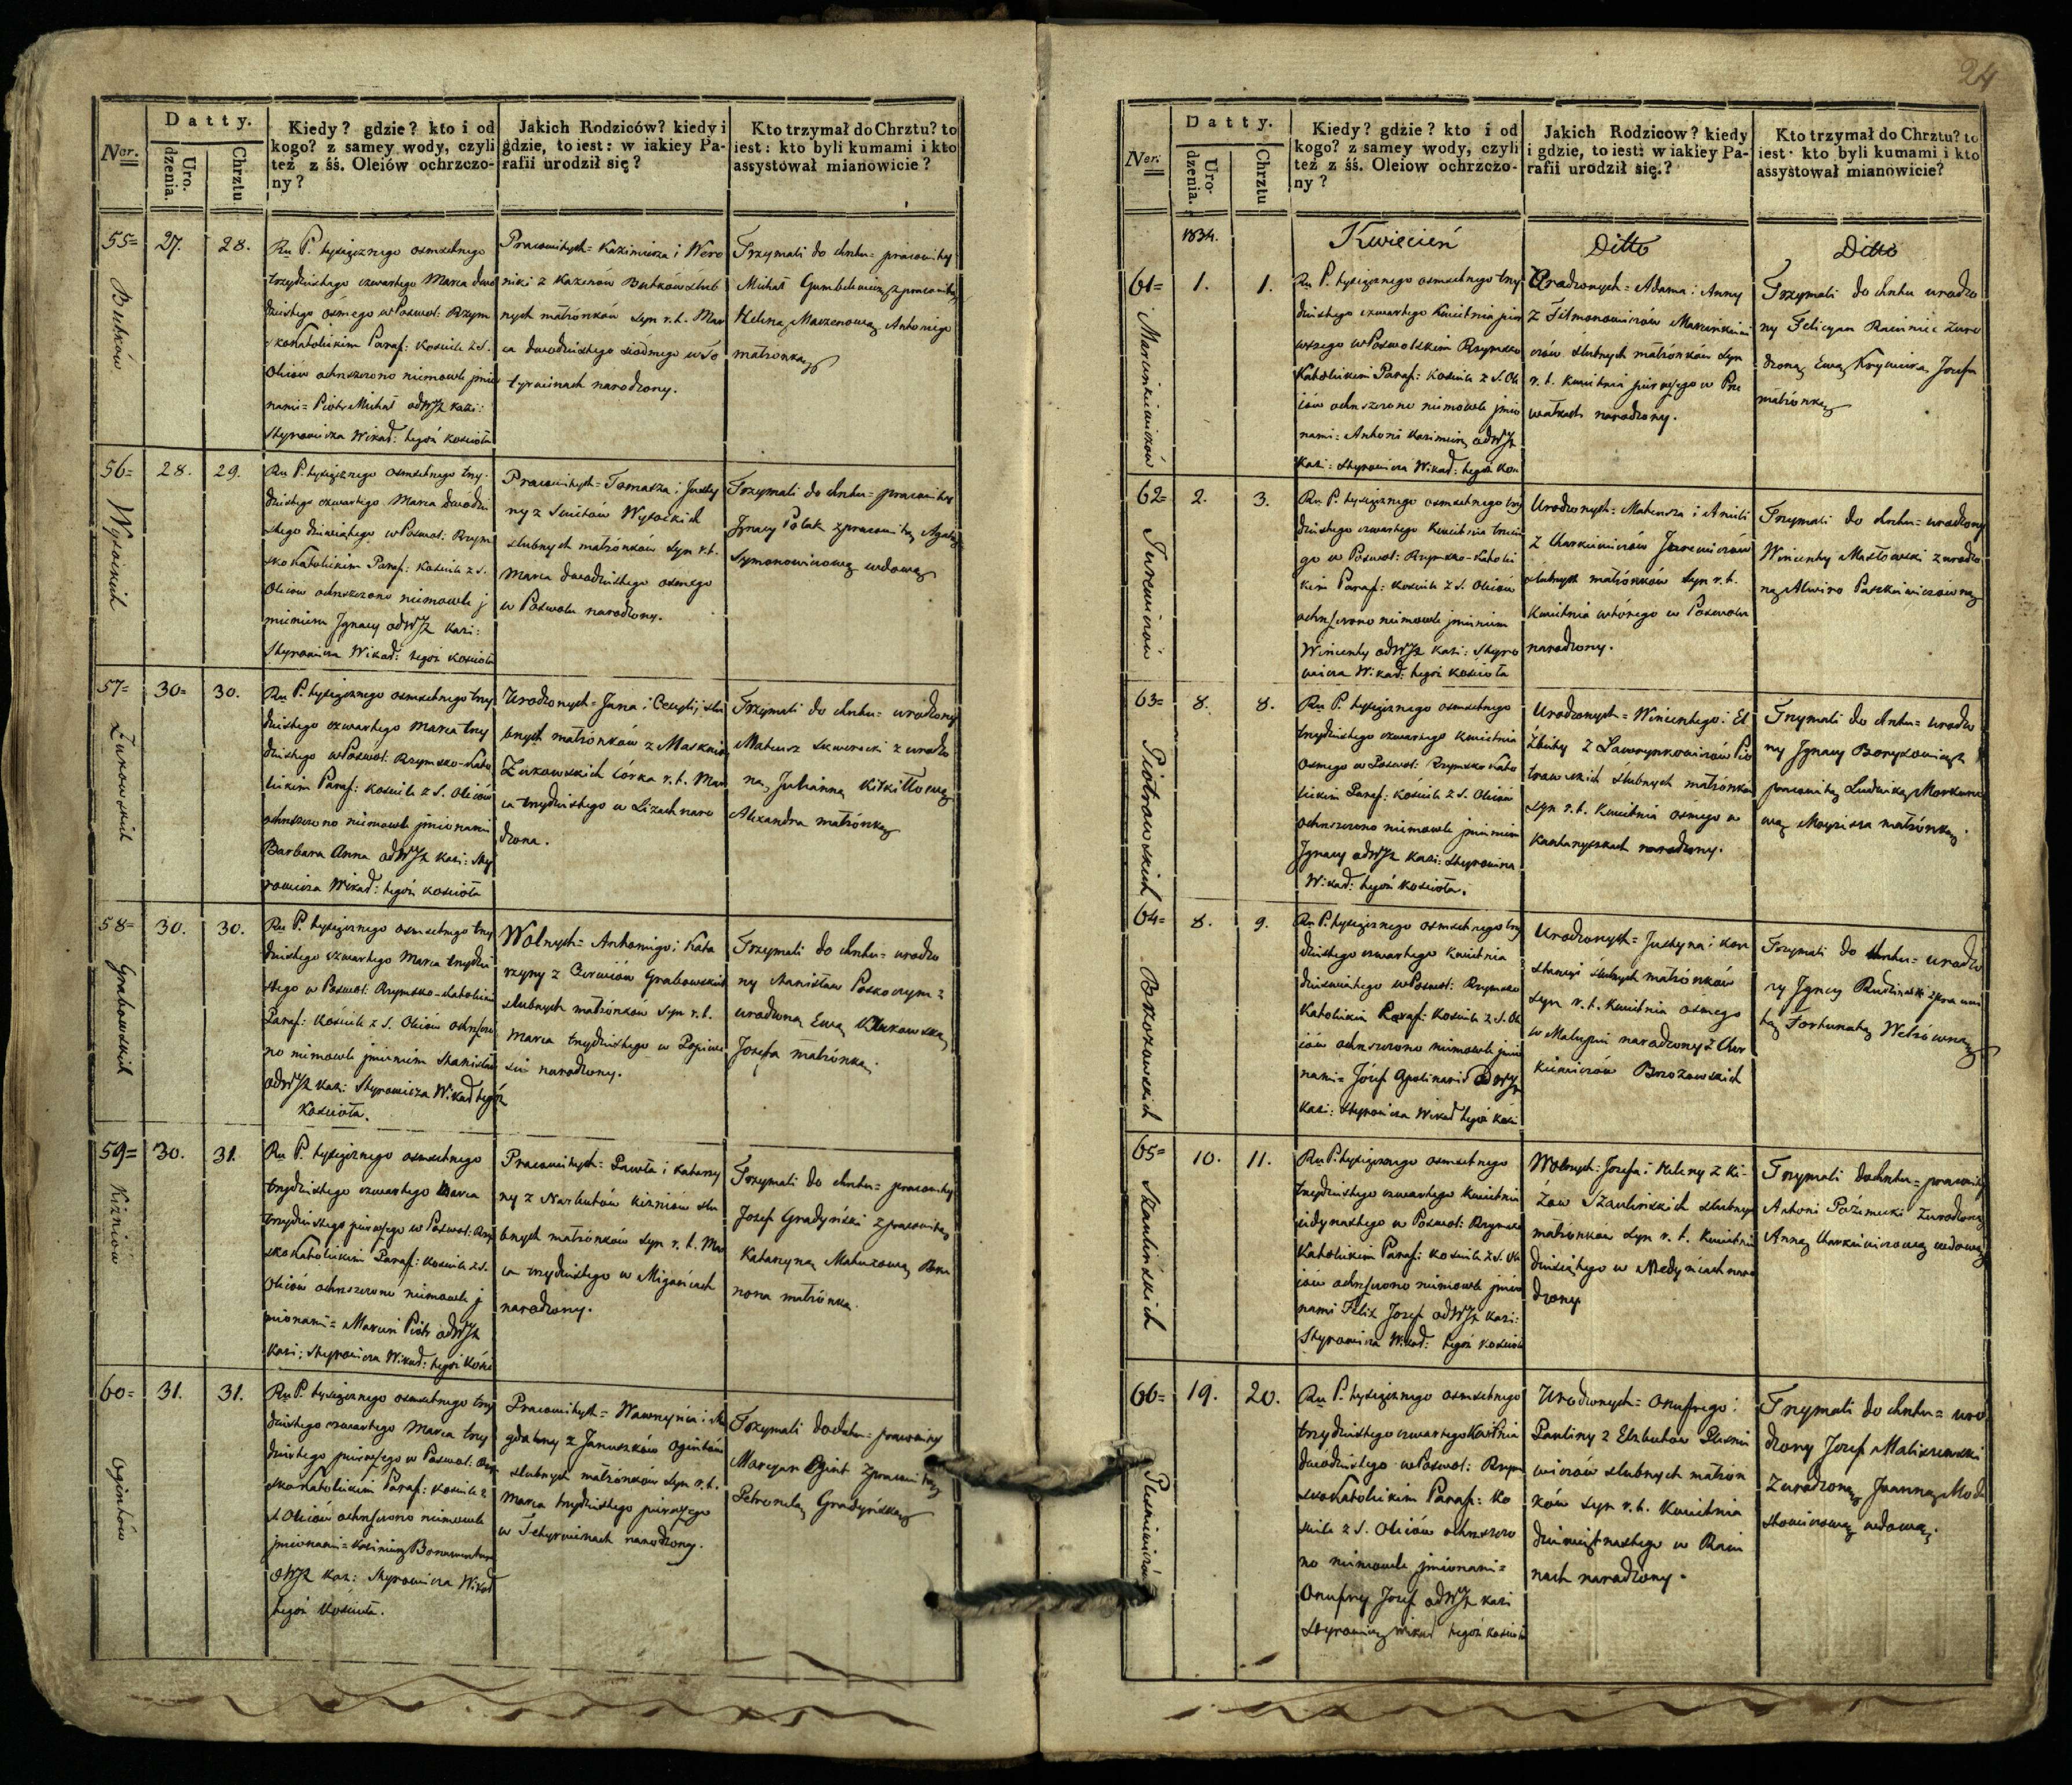 24
Datty.
Ner.
Uro-
dzenia.
Chrztu
Kiedy? gdzie? kto i od
kogo? z samey wody, czyli
też z śś. Oleiów ochrzczo-
ny?
Jakich Rodziców? kiedy i
gdzie, to iest: w iakiey Pa-
rafii urodził się?
Kto trzymał do Chrztu? to
iest: kto byli kumami i kto
assystował mianowicie?
55= 27. 28.
Butków
Ru P. tysiącznego osmsetnego
trzydziestego czwartego Marca dwu
dziestego ósmego w Poswol: Rzym
sko Katolickim Paraf: Kościele z S.
Oleiów ochrzczono niemowle jmio
nami= Piotr Michał od WJX Kazi:
Skyrowicza Wikad: tegoż kościoła
Pracowitych= Kazimierza i Wero
niki z Kazenów Butków slub
nych małżonków syn r.t. Mar
ca dwudziestego siodmego w To
tyrwinach narodzony.
Trzymali do chrztu= pracowity
Michał Gumbelewicz z pracowitą
Heleną Mazenową Antoniego
małżonką
56= 28. 29.
Wysockich
Ru P. tysiącznego osmsetnego trzy
dziestego czwartego Marca dwudzie
stego dziewiątego w Poswol: Rzym
sko Katolickim Paraf: Kościele z S.
Oleiów ochrzczono niemowle j
mieniem Jgnacy od WJX Kazi:
Skyrowicza Wikad: tegoż kościoła
Pracowitych= Tomasza i Justy
ny z Smitów Wysockich
slubnych małżonków syn r.t.
Marca dwudziestego osmego
w Poswolu narodzony.
Trzymali do chrztu= pracowity
Jgnacy Polak z pracowitą Agatą
Symonowiczową wdową
57= 30= 30.
Żukowskich
Ru P. tysiącznego osmsetnego trzy
dziestego czwartego Marca trzy
dziestego w Poswol: Rzymsko-Kato
lickim Paraf: Kościele z S. Oleiów
ochrzczono niemowle jmionami
Barbara Anna od WJX Kazi: Sky
rowicza Wikad: tegoż kościoła
Urodzonych= Jana i Cecylij slu
bnych małżonków z Masknia
Żukowskich Córka r.t. Mar
ca trzydziestego w Liżach naro
dzona.
Trzymali do chrztu= urodzony
Mateusz Skworecki z urodzo
ną Julianną Kitkiłłową
Alexandra małżonką
58= 30. 30.
Grabowskich
Ru P. tysiącznego osmsetnego trzy
dziestego czwartego Marca trzydzie
stego w Poswol: Rzymsko-Katolickim
Paraf: Kościele z S. Oleiów ochrzczo
no niemowle jmieniem Stanisław
od WJX Kazi: Skyrowicza Wikad tegoż
Kościoła.
Wolnych= Antoniego i Kata
rzyny z Grabowskich
slubnych małżonków syn r.t.
Marca trzydziestego w
narodzony.
Trzymali do chrztu= urodzo
ny Stanisław Poskoczym z
urodzoną Ewą Klukowską
Jozefa małżonką.
59= 30. 31.
Kiżniów
Ru P. tysiącznego osmsetnego
trzydziestego czwartego Marca
trzydziestego pierwszego w Poswol: Rzym
sko Katolickim Paraf: Kościele z S.
Oleiów ochrzczono niemowle j
mionami= Marcin Piotr od WJX
Kazi: Skyrowicza Wikad: tegoż kości
Pracowitych= Pawła i Katarzy
ny z Narbutów Kiżniów slu
bnych małżonków syn r.t. Mar
ca trzydziestego w Migańcach
narodzony.
Trzymali do chrztu= pracowity
Jozef Gradyński z pracowitą
Katarzyną Matuzową Bru
nona małżonką.
60= 31. 31.
Ogintów
Ru P. tysiącznego osmsetnego trzy
dziestego czwartego Marca trzy
dziestego pierwszego w Poswol: Rzym
sko Katolickim Paraf: Kościele z
S Oleiów ochrzczono niemowle
jmionami= Kazimierz Bonawentura
od WJX Kazi: Skyrowicza Wikad
tegoż Kościoła.
Pracowitych= Wawrzyńca i Ma
gdaleny z Januszków Ogintów
slubnych małżonków syn r.t.
Marca trzydziestego pierwszego
w Tetyrwinach narodzony.
Trzymali do chrztu= pracowity
Maryan Ogint z pracowitą
Petronelą Gradyńską
Datty.
Ner.
Uro-
dzenia.
Chrztu
Kiedy? gdzie? kto i od
kogo? z samey wody, czyli
też z śś. Oleiow ochrzczo-
ny?
Jakich Rodzicow? kiedy
i gdzie, to iest: w iakiey Pa-
rafii urodził się.?
Kto trzymał do Chrztu? to
iest: kto byli kumami i kto
assystował mianowicie?
1834.
Kwiecień
Ditto
Ditto
61= 1. 1.
Marcinkiewiczów
Ru P. tysiącznego osmsetnego trzy
dziestego czwartego Kwietnia pier
wszego w Poswolskim Rzymsko
Katolickim Paraf: Kościele z S. Ole
iów ochrzczono niemowle jmio
nami= Antoni Kazimierz od WJX
Kazi: Skyrowicza Wikad: tegoż Koś
Urodzonych= Adama i Anny
z Filmonowiczów Marcinkiewi
czów slubnych małżonków syn
r.t. Kwietnia pierwszego w Pne
watkach narodzony.
Trzymali do chrztu urodzo
ny Felicyan Racinie z uro
dzoną Ewą Jozefa
małżonką
62= 2. 3.
Jurewiczów
Ru P. tysiącznego osmsetnego trzy
dziestego czwartego Kwietnia trzecie
go w Poswol: Rzymsko-Katolic
kim Paraf: Kościele z S. Oleiów
ochrzczono niemowle jmieniem
Wincenty od WJX Kazi: Skyro
wicza Wikad: tegoż kościoła
Urodzonych= Mateusza i Anieli
z Charkiewiczów Jurewiczów
slubnych małżonków syn r.t.
Kwietnia wtórego w Poswolu
narodzony.
Trzymali do chrztu= urodzony
Wincenty Masłowski z urodzo
ną Alwiro Paszkiewiczówną
63= 8. 8.
Piotrowskich
Ru P. tysiącznego osmsetnego
trzydziestego czwartego Kwietnia
Osmego w Poswol: Rzymsko Kato
lickim Paraf: Kościele z S. Oleiów
ochrzczono niemowle jmieniem
Jgnacy od WJX Kazi: Skyrowicza
Wikad: tegoż kościoła.
Urodzonych= Wincentego i El
żbiety z Ławrynowiczów Pio
trowskich slubnych małżonków
syn r.t. Kwietnia osmego w
Kantaryszkach narodzony.
Trzymali do chrztu= urodzo
ny Jgnacy Borysowicz z
pracowitą Ludwiką Morkuno
wą Moyżisza małżonką.
64= 8. 9.
Brzozowskich
Ru P. tysiącznego osmsetnego trzy
dziestego czwartego Kwietnia
dziewiątego w Poswol: Rzymsko
Katolickim Paraf: Kościele z S. Ole
iów ochrzczono niemowle jmio
nami= Józef Apolinari od WJX
Kazi: Skyrowicza Wikad tegoż kości
Urodzonych= Justyna i Kon
stancyi slubnych małżonków
syn r.t. Kwietnia osmego
w narodzony z Char
kiewiczów Brzozowskich
Trzymali do chrztu= urodzo
ny Jgnacy Rudziński z prawi
tą Fortunatą Welżówną
65= 10. 11.
Szaulińskich
Ru P. tysiącznego osmsetnego
trzydziestego czwartego Kwietnia
jedynastego w Poswol: Rzymsko
Katolickim Paraf: Kościele z S. Ole
iów ochrzczono niemowle jmio
nami Felix Jozef od WJX Kazi:
Skyrowicza Wikad: tegoż Kościoła
Wolnych= Jozefa i Heleny z Ki
żów Szaulińskich slubnych
małżonków syn r.t. Kwietnia
dziesiątego w Medyniach naro
dzony
Trzymali do chrztu= pracowity
Antoni Poźemecki z urodzoną
Anną Charkiewiczową wdową
66= 19. 20.
Pleśniewiczów
Ru P. tysiącznego osmsetnego
trzydziestego czwartego Kwietnia
dwudziestego w Poswol: Rzym
sko Katolickim Paraf: Ko
ściele z S. Oleiów ochrzczo
no niemowle jmionami=
Onufry Jozef od WJX Kazi
Skyrowicz wikad tegoż kościoła
Urodzonych= Onufrego i
Pauliny z Elzbutów Pleśnie
wiczów slubnych małżon
ków syn r.t. Kwietnia
dziewiętnastego w Rawi
nach narodzony.
Trzymali do chrztu= uro
dzony Jozef Maliszewski
z urodzoną Joanną Mod
stowiczową wdową.